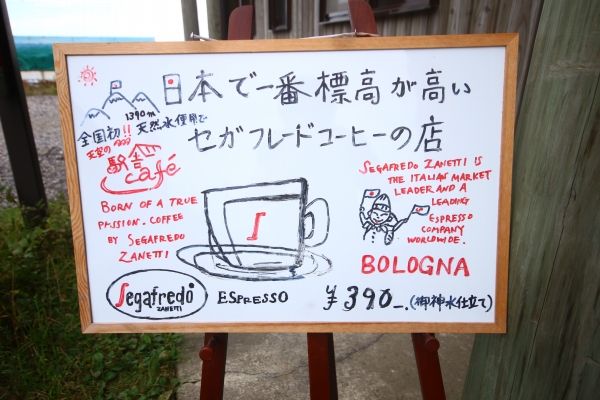 日本で一番標高が高い
1390m
全国初!! 天然水使用で
セガフレードコーヒーの店
天空の
駅舎
café
BORN OF A TRUE
PASSION. COFFEE
BY SEGAFREDO
ZANETTI
SEGAFREDO ZANETTI IS
THE ITALIAN MARKET
LEADER AND A
LEADING
ESPRESSO
COMPANY
WORLDWIDE.
BOLOGNA
Segafredo
ZANETTI
ESPRESSO
¥390-.(御神水仕立て)